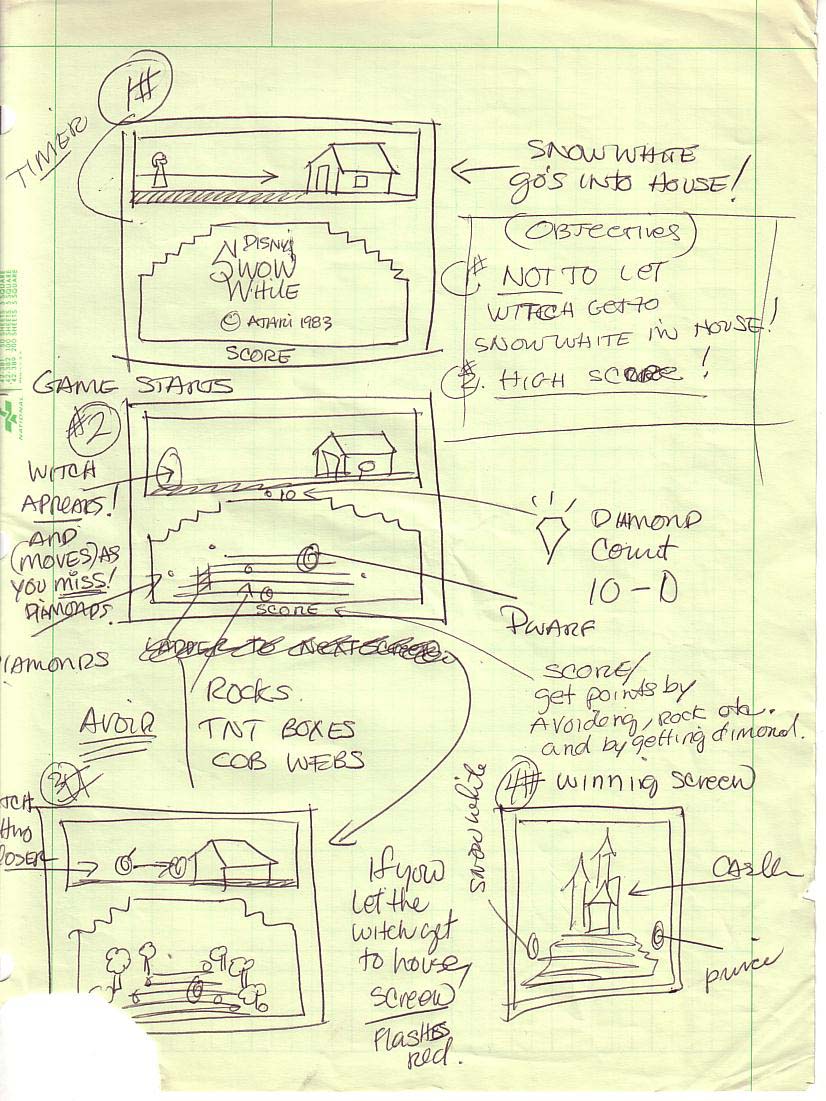 1#
TIMER
SNOWWHITE
GO'S INTO HOUSE!
OBJECTIVES
# NOT TO LET
WITCH GET TO
SNOWWHITE IN HOUSE!
#2. HIGH SCORE!
DISNY
SWOW
WHILE
© ATARI 1983
SCORE
GAME STARTS
#2
WITCH
APREARS!
AND
(MOVES) AS
YOU MISS!
DIAMONDS
10
DIAMOND
COUNT
10-0
DWARF
SCORE
IAMONDS
LADDER TO NEXT SCREEN
SCORE/
get points by
Avoiding, rock etc.
and by getting dimond.
AVOID
ROCKS
TNT BOXES
COB WEBS
3#
TCH
OSER
If you
Let the
witch get
to house,
screen
Flashes
red.
4# winning screen
snow white
CASLLE
prince
NATIONAL